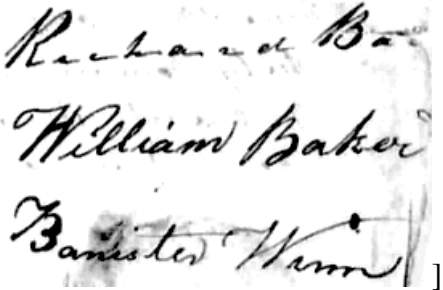 Richard Ba
William Baker
Banister Winn ]